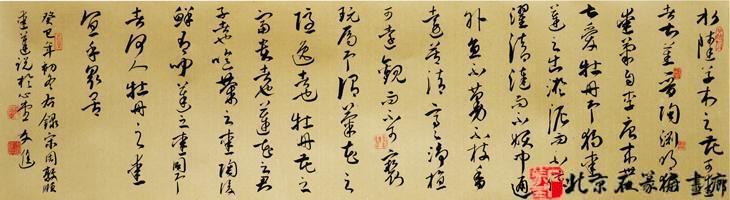 水陸草木之花可
者甚蕃晉陶淵明
愛菊自李唐來世
愛牡丹予獨愛
蓮之出淤泥而不染
濯清漣而不妖中通
外直不蔓不枝香
遠益清亭亭淨植
可遠觀而不可褻
玩焉予謂菊花之
隱逸者也牡丹花之
富貴者也蓮花之君
子者也噫菊之愛陶後
鮮有聞蓮之愛同予
者何人牡丹之愛
宜乎眾矣
癸巳年初夏右錄宋周敦頤
愛蓮說於心
北京
畫廊